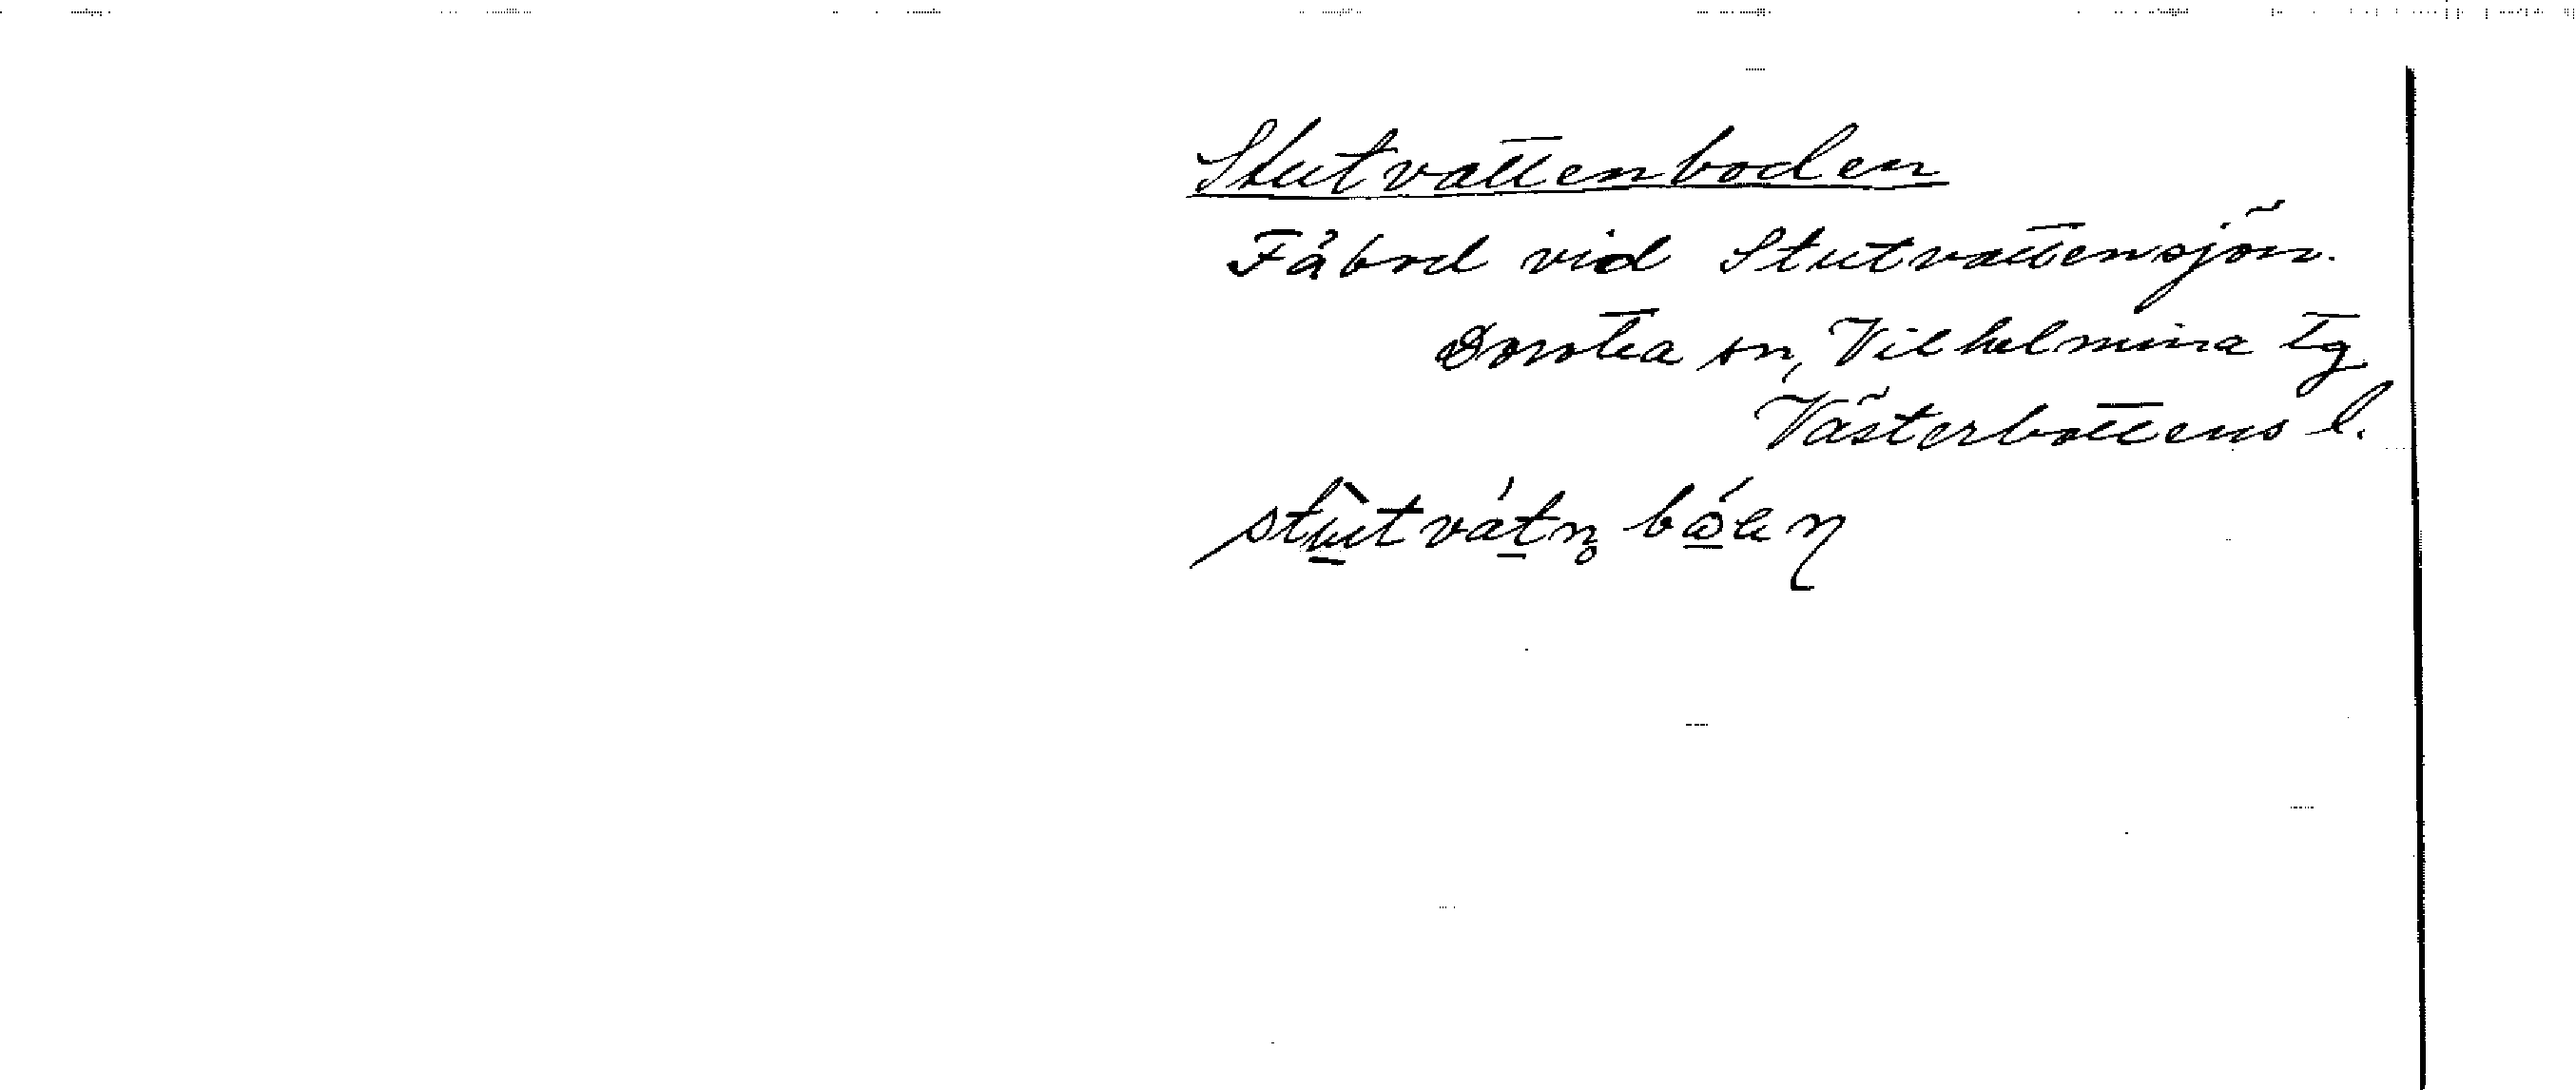 Stutvattenboden
Fäbod vid Stutvattensjön.
Dorotea sn, Vilhelmina tg
Västerbottens l.
stùt vátn̥ bóden